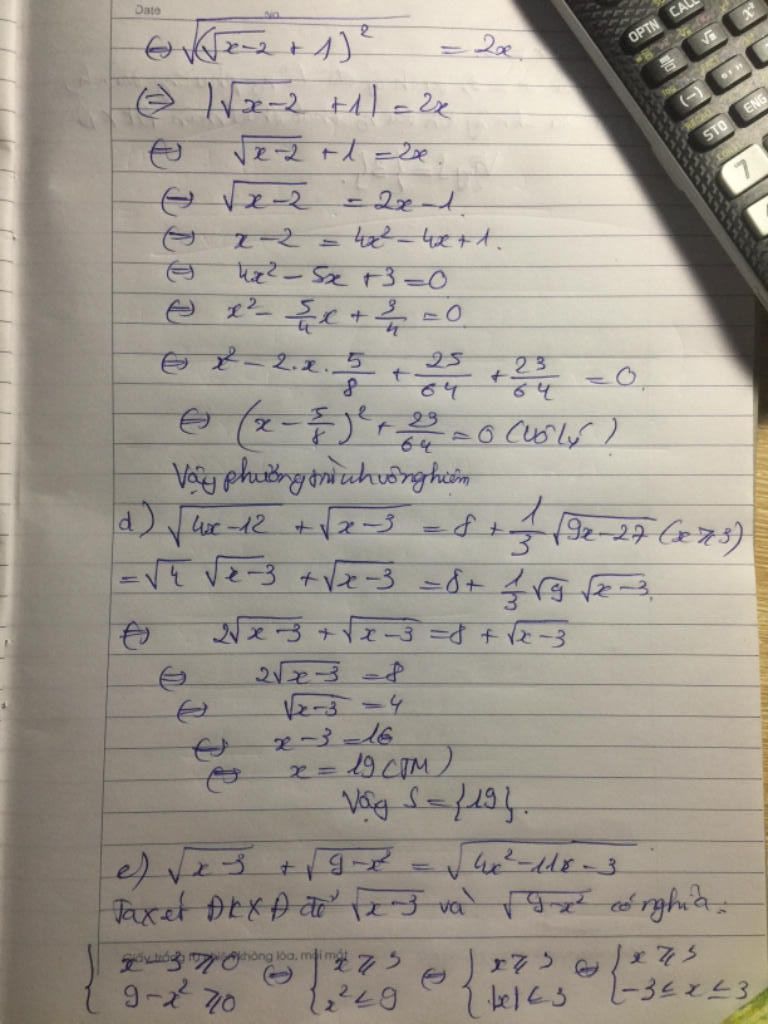 Date
No.
⇔ √((√(x-2) + 1)²) = 2x.
⇔ |√(x-2) + 1| = 2x
⇔ √(x-2) + 1 = 2x.
⇔ √(x-2) = 2x-1.
⇔ x-2 = 4x² - 4x + 1.
⇔ 4x² - 5x + 3 = 0
⇔ x² - 5/4 x + 3/4 = 0
⇔ x² - 2.x.5/8 + 25/64 + 23/64 = 0.
⇔ (x - 5/8)² + 23/64 = 0 (Vô lý)
Vậy phương trình vô nghiệm
d) √(4x-12) + √(x-3) = 8 + 1/3 √(9x-27) (x ≥ 3)
= √4 √(x-3) + √(x-3) = 8 + 1/3 √9 √(x-3).
⇔ 2√(x-3) + √(x-3) = 8 + √(x-3)
⇔ 2√(x-3) = 8
⇔ √(x-3) = 4
⇔ x-3 = 16
⇔ x = 19 (TM)
Vậy S = {19}.
e) √(x-3) + √(9-x²) = √(4x²-11x-3)
Ta xét ĐKXĐ để √(x-3) và √(9-x²) có nghĩa:
{ x-3 ≥ 0 ⇔ { x ≥ 3 ⇔ { x ≥ 3 ⇔ { x ≥ 3
9-x² ≥ 0 x² ≤ 9 |x| ≤ 3 -3 ≤ x ≤ 3
Giấy trắng tự nhiên không lóa, mỏi mắt
OPTN CALC
√x x²
(-) °'"
STO ENG
7